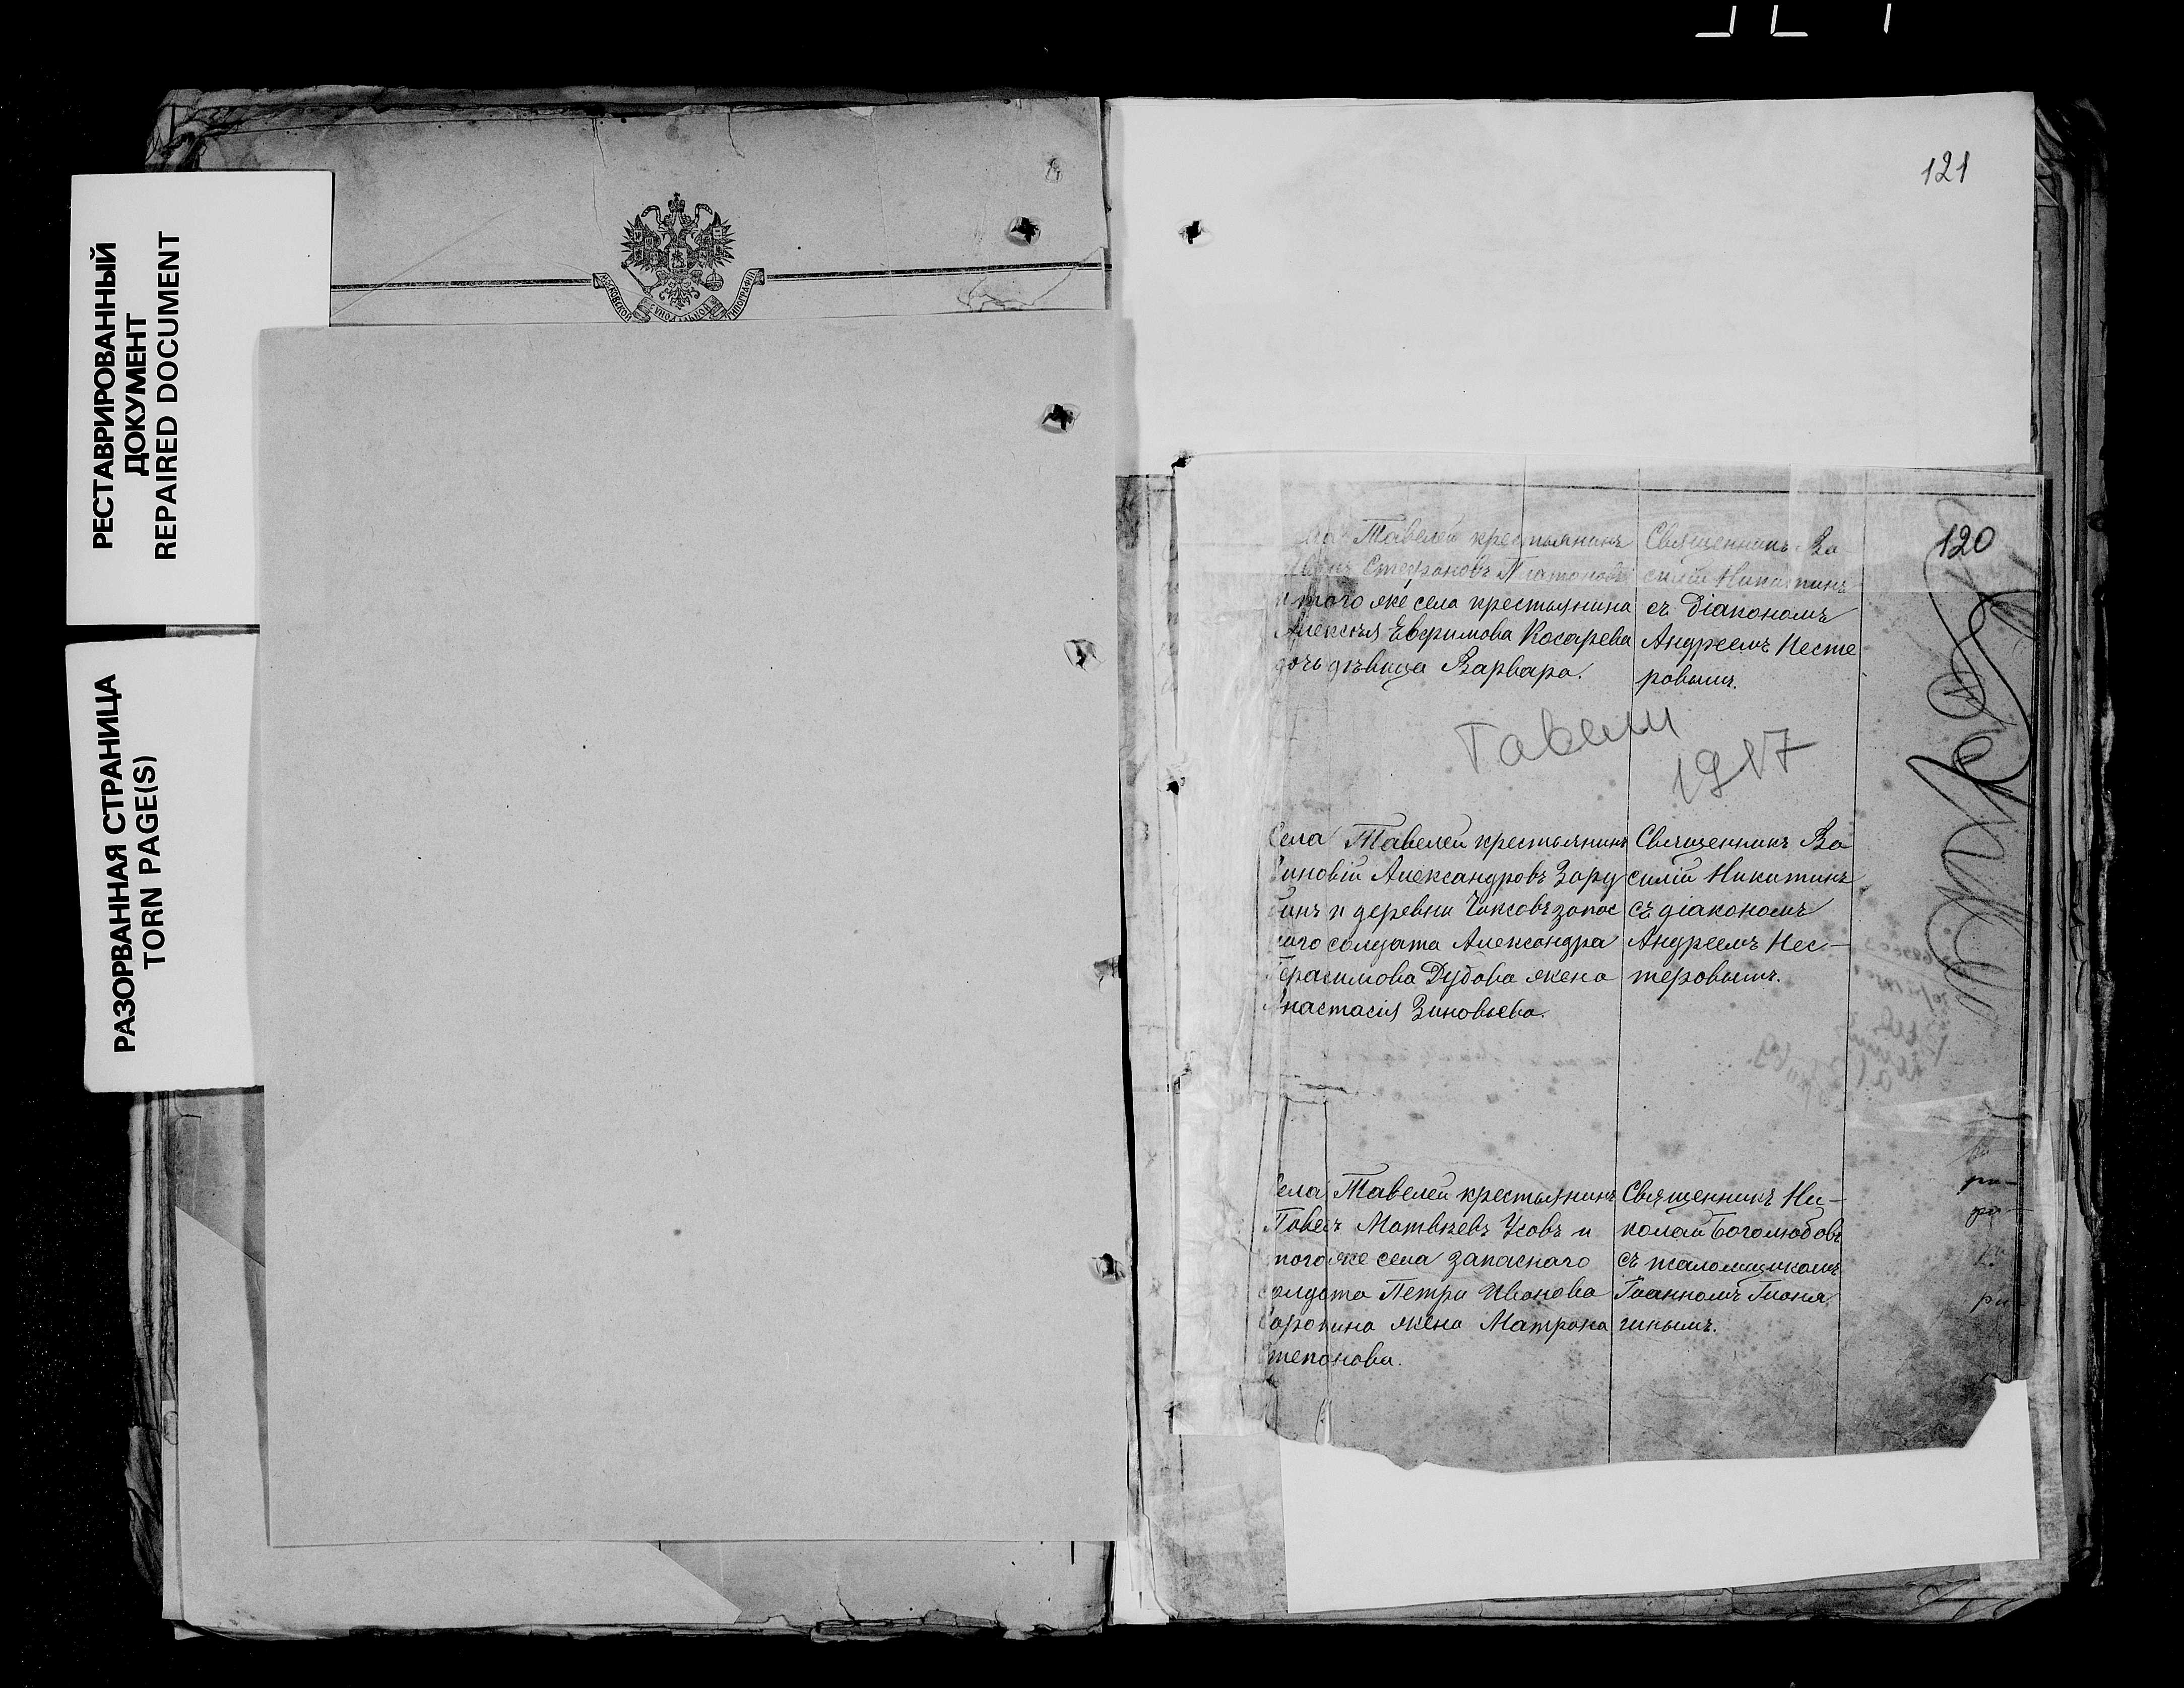 РЕСТАВРИРОВАННЫЙ
ДОКУМЕНТ
REPAIRED DOCUMENT
РАЗОРВАННАЯ СТРАНИЦА
TORN PAGE(S)
МОСКОВСКОЙ СѴНОДАЛЬНОЙ ТИПОГРАФІИ
121
120
Тавелей крестьянинъ
Стефановъ Платоновъ
и того же села крестьянина
Алексѣя Евфимова Косарева
дочь дѣвица Варвара.
Священникъ Ва
силій Никитинъ
съ діакономъ
Андреемъ Несте
ровымъ.
Тавели
1917
Села Тавелей крестьянинъ
Зиновій Александровъ Зару
бинъ и деревни Чиксовъ запас
наго солдата Александра
Герасимова Дубова жена
Анастасія Зиновьева.
Священникъ Ва
силій Никитинъ
съ діакономъ
Андреемъ Нес-
теровымъ.
Села Тавелей крестьянинъ
Павелъ Матвѣевъ Усовъ и
того же села запаснаго
солдата Петра Иванова
Сорокина жена Матрона
Степанова.
Священникъ Ни-
колай Боголюбовъ
съ псаломщикомъ
Іоанномъ
гинымъ.